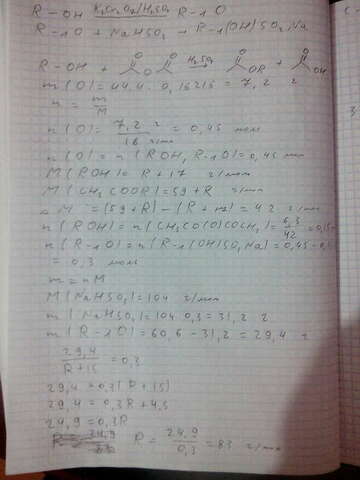 R-OH K₂Cr₂O₇/H₂SO₄ R-1O
R-1O + NaHSO₃ → R-1(OH)SO₃Na
R-OH + O O O H₂SO₄ O OR + O OH
m(O) = 44,4 · 0,16215 = 7,2 г
n = m/M
n(O) = 7,2 г / 16 г/моль = 0,45 моль
n(O) = n(ROH, R-1O) = 0,45 моль
M(ROH) = R + 17 г/моль
M(CH₃COOR) = 59 + R г/моль
M = (59+R) - (R+17) = 42 г/моль
n(ROH) = n(CH₃CO(O)COCH₃) = 6,3/42 = 0,15
n(R-1O) = n(R-1(OH)SO₃Na) = 0,45 - 0,1
= 0,3 моль
m = nM
M(NaHSO₃) = 104 г/моль
m(NaHSO₃) = 104 · 0,3 = 31,2 г
m(R-1O) = 60,6 - 31,2 = 29,4 г
29,4 / R+15 = 0,3
29,4 = 0,3(R+15)
29,4 = 0,3R + 4,5
24,9 = 0,3R
R = 24,9/0,3 = 83 г/моль